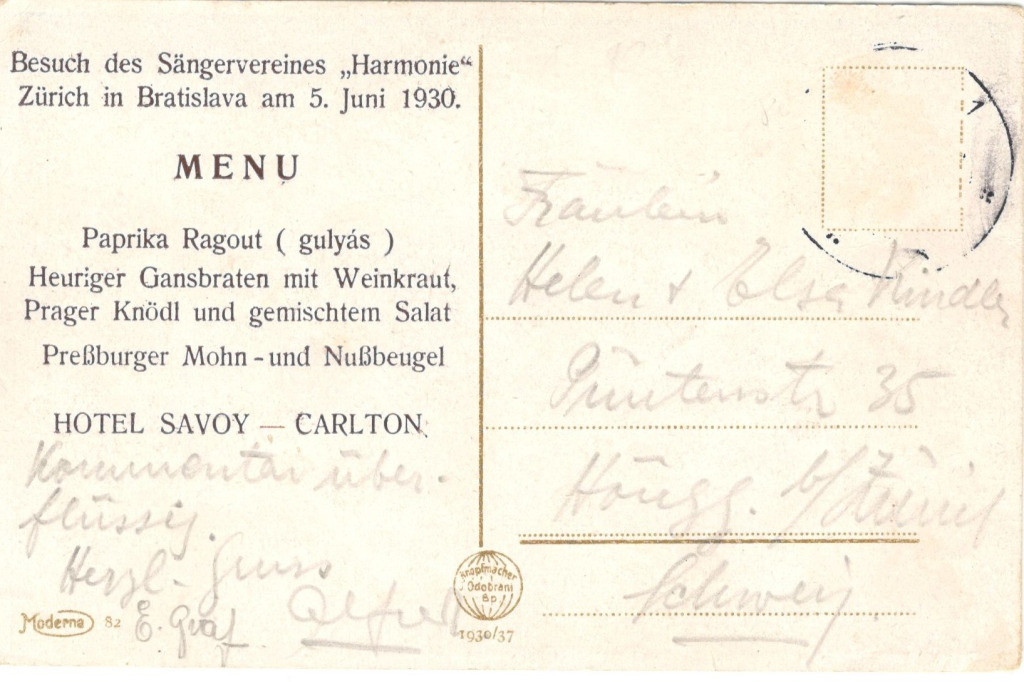 Besuch des Sängervereines „Harmonie“
Zürich in Bratislava am 5. Juni 1930.
MENU
Paprika Ragout ( gulyás )
Heuriger Gansbraten mit Weinkraut,
Prager Knödl und gemischtem Salat
Preßburger Mohn - und Nußbeugel
HOTEL SAVOY — CARLTON
Kommentar über-
flüssig.
Herzl. Gruss
E. Graf Alfred
Moderna 82
Fräulein
Helen + Elsa Kindler
Püntenstr 35
Höngg. b/Zürich
Schweiz
Knoplmacher
Odobrani
Bp
1930/37